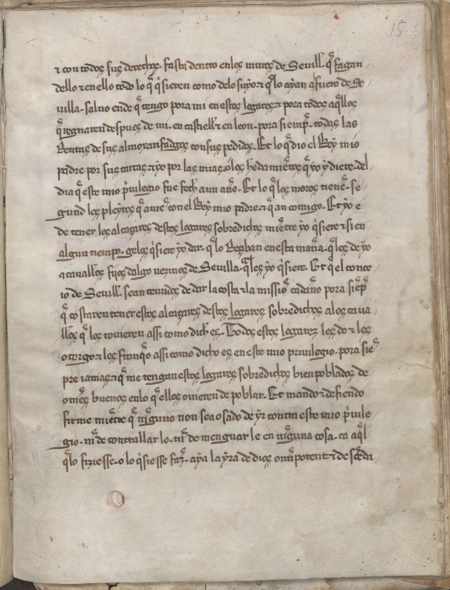 15
⁊ con todos sus derechos. fasta dentro en los muros de Seuill. q̃ fagan
dello ⁊ en ello todo lo q̃ q̃sieren como delo suyo. ⁊ q̃ lo ayan a fuero de Se
uilla. saluo ende q̃ tengo pora mi en estos logares ⁊ pora todos aq̃llos
q̃ regnaren despues de mi. en castiella ⁊ en leon. pora siemp̃. todas las
Rentas de sus almoxarifadgos con sus pechos. Et lo q̃ dio el Rey mio
padre por sus cartas. ⁊ yo por las mias. o los heredamiẽtos q̃ yo y diere. del
dia q̃ este mio p̃uilegio fue fecho a un año. Et lo q̃ los moros tienẽ. se
gund los pleytos q̃ auiẽ con el Rey mio padre. ⁊ q̃ an comigo. Et yo e
de tener los alcaçares destos logares sobredichos miẽtre yo q̃siere. ⁊ si en
algun tiemp̃. gelos q̃siere yo dar. q̃ lo Resciban en esta maña. q̃ los de yo
a caualleros fijos dalgo uezinos de Seuilla. q̃les yo q̃siere. Et q̃ el conce
io de Seuill. sean tenudos de dar la costa ⁊ la missiõ cadaño pora siẽp̃
q̃ costaren tener estos alcaçares destos logares sobredichos a los caua
lleros q̃ los touieren assi como dich es. Todos estos logares les do ⁊ les
otorgo ⁊ les franq̃o assi como dicho es en este mio priuilegio. pora siẽ
pre iamas. ⁊ q̃ me tengan estos logares sobredichos bien poblados de
omẽs buenos en lo q̃ ellos ouieren de poblar. Et mando ⁊ defiendo
firme miẽtre q̃ nĩguno non sea osado de yr contra este mio p̃uile
gio. nĩ de crebantar lo. nĩ de menguar le en nĩguna cosa. ca aq̃l
q̃ lo fiziesse. o lo q̃siesse faz̃. aya la yra de dios om̃ipotent ⁊ de scã